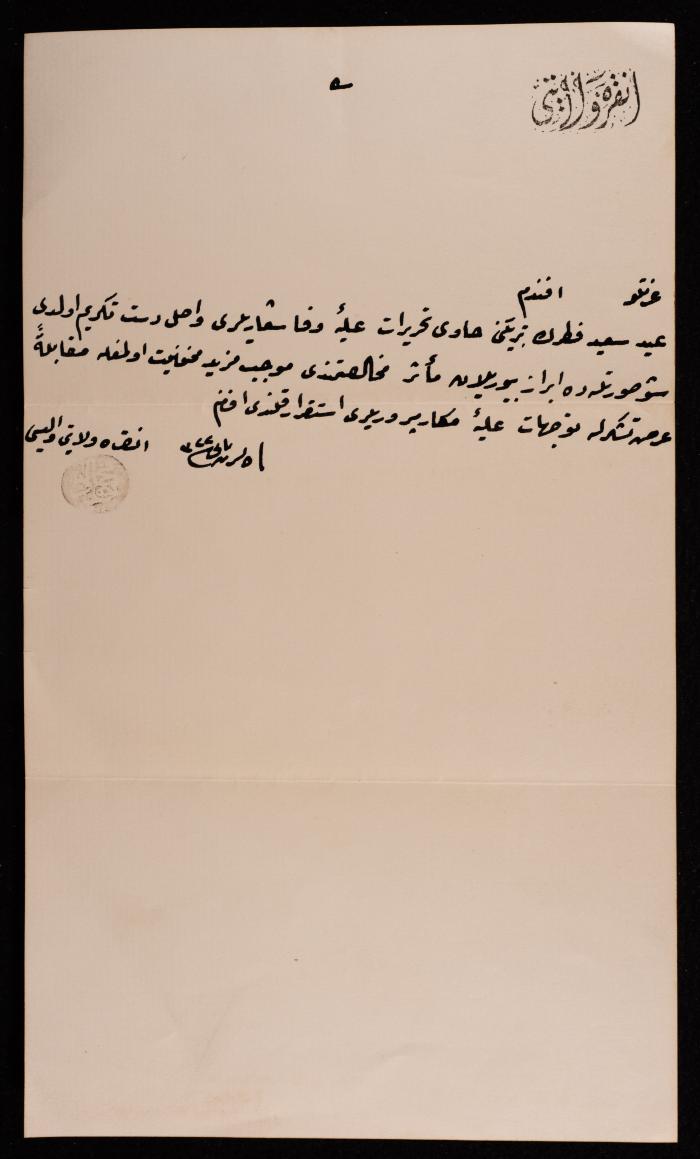 انقره ولايتى
عزتلو افندم
عيد سعيد فطرك تبريكنى حاوى تحريرات عليۀ وفا شعاريلرى واصل دست تكريم اولدى
شو صورتله ده ابراز بيوريلان مأثر مخالصتمندى موجب مزيد ممنونيت اولمغله مقابلةً
عرض تشكرله توجهات عليۀ مكارم پروريلرى استقرار قلندى افندم
انقره ولايتى واليسى